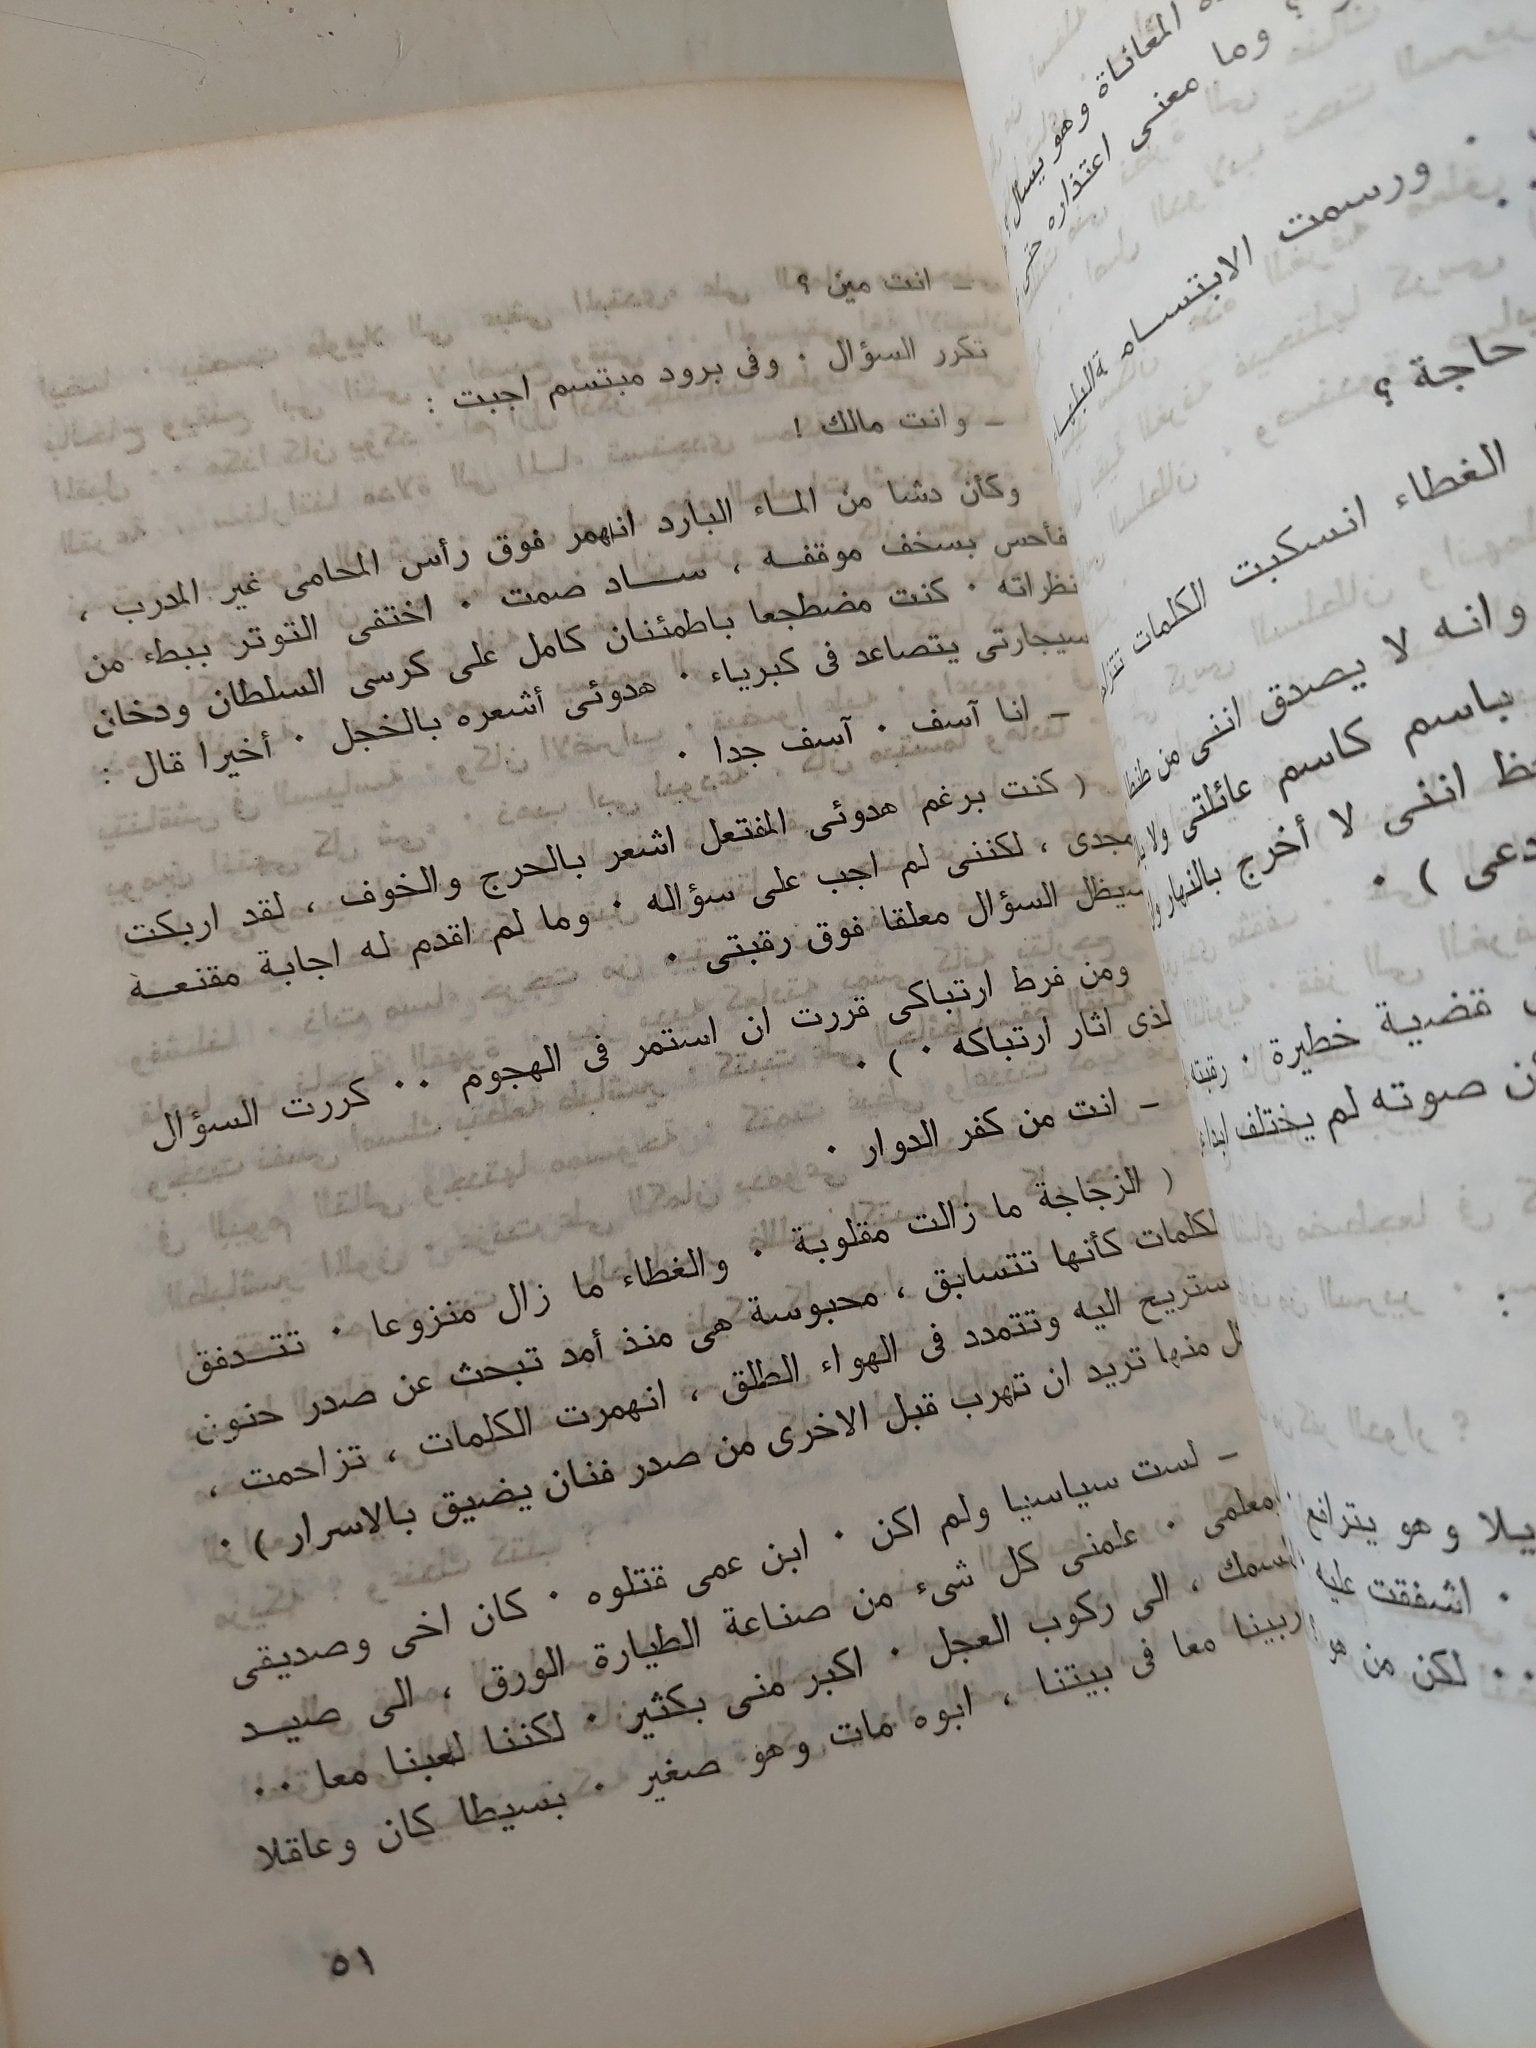 ة المعاناة وهو يسأل
؟ وما معنى اعتذاره حتى
ورسمت الابتسامة البلهاء
حاجة ؟
الغطاء انسكبت الكلمات
وانه لا يصدق اننى من طنطا
باسم كاسم عائلتى ولا
اننى لا أخرج بالنهار
دعى ) ٠
قضية خطيرة ٠ رقبته
أن صوته لم يختلف ابدا
يلا وهو يترافع
٠ اشفقت عليه
٠٠ لكن من هو
ـ انت مين ؟
تكرر السؤال ٠ وفى برود مبتسم اجبت :
ـ وانت مالك !
وكأن دشا من الماء البارد انهمر فوق رأس المحامى غير المدرب ،
فأحس بسخف موقفه ، ساد صمت ٠ اختفى التوتر ببطء من
نظراته ٠ كنت مضطجعا باطمئنان كامل على كرسى السلطان ودخان
سيجارتى يتصاعد فى كبرياء ٠ هدوئى أشعره بالخجل ٠ أخيرا قال :
ـ انا آسف ٠ آسف جدا ٠
( كنت برغم هدوئى المفتعل اشعر بالحرج والخوف ، لقد اربكت
مجدى ، لكننى لم اجب على سؤاله ٠ وما لم اقدم له اجابة مقنعة
سيظل السؤال معلقا فوق رقبتى ٠
ومن فرط ارتباكى قررت ان استمر فى الهجوم ٠٠ كررت السؤال
لذى اثار ارتباكه ٠ ) ٠
ـ انت من كفر الدوار ٠
( الزجاجة ما زالت مقلوبة ٠ والغطاء ما زال منزوعا ٠ تتدفق
لكلمات كأنها تتسابق ، محبوسة هى منذ أمد تبحث عن صدر حنون
ستريح اليه وتتمدد فى الهواء الطلق ، انهمرت الكلمات ، تزاحمت ،
ل منها تريد ان تهرب قبل الاخرى من صدر فنان يضيق بالاسرار ) ٠
ـ لست سياسيا ولم اكن ٠ ابن عمى قتلوه ٠ كان اخى وصديقى
معلمى ٠ علمنى كل شىء من صناعة الطيارة الورق ، الى صيد
لسمك ، الى ركوب العجل ٠ اكبر منى بكثير ٠ لكننا لعبنا معا ٠٠
ربينا معا فى بيتنا ، ابوه مات وهو صغير ٠ بسيطا كان وعاقلا
٥١